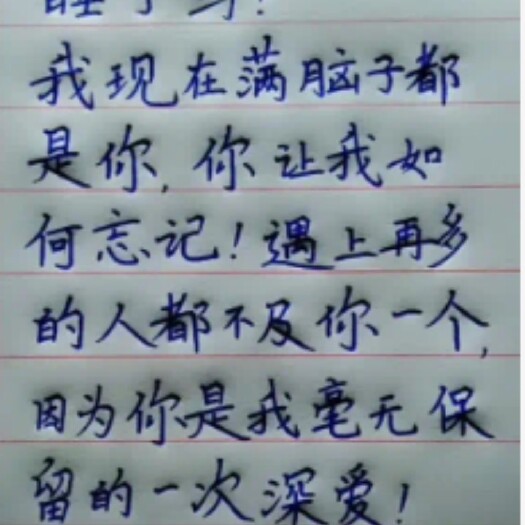 我现在满脑子都
是你,你让我如
何忘记!遇上再多
的人都不及你一个,
因为你是我毫无保
留的一次深爱!